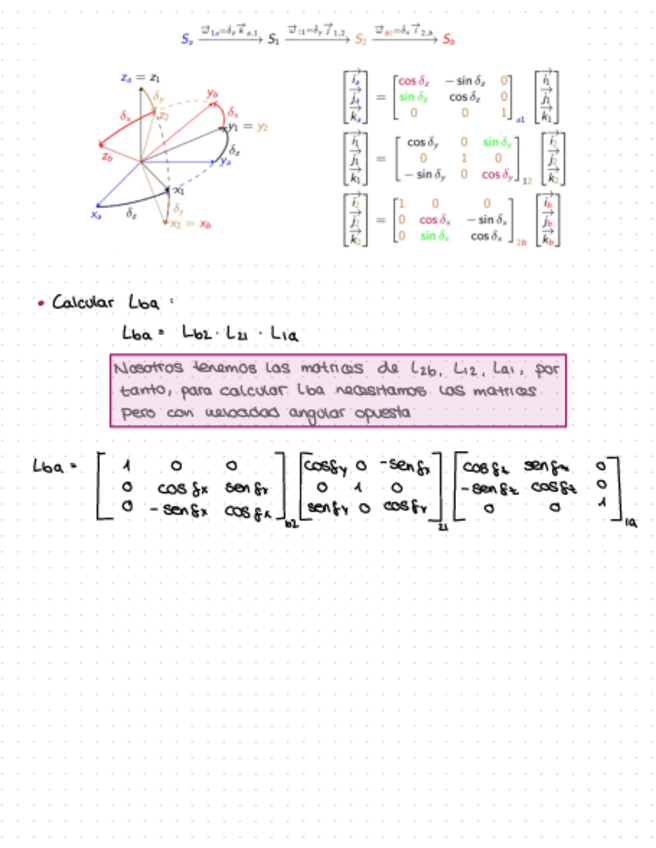 S_a \xrightarrow{\vec{ω}_{1a}=\dot{δ}_z \vec{k}_{a,1}} S_1 \xrightarrow{\vec{ω}_{21}=\dot{δ}_y \vec{j}_{1,2}} S_2 \xrightarrow{\vec{ω}_{b2}=\dot{δ}_x \vec{i}_{2,b}} S_b
z_a = z_1
δ_y
y_b
δ_x
z_2
δ_x
y_1 = y_2
δ_z
z_b
y_a
x_1
x_a
δ_z
δ_y
x_2 = x_b
[i_a j_a k_a] = [cos δ_z −sin δ_z 0; sin δ_z cos δ_z 0; 0 0 1]_{a1} [i_1 j_1 k_1]
[i_1 j_1 k_1] = [cos δ_y 0 sin δ_y; 0 1 0; −sin δ_y 0 cos δ_y]_{12} [i_2 j_2 k_2]
[i_2 j_2 k_2] = [1 0 0; 0 cos δ_x −sin δ_x; 0 sin δ_x cos δ_x]_{2b} [i_b j_b k_b]
• Calcular Lba :
Lba = Lb2 · L21 · L1a
Nosotros tenemos las matrices de L2b, L12, La1, por
tanto, para calcular Lba necesitamos las matrices
pero con velocidad angular opuesta
Lba =
1 0 0 cosδy 0 -senδy cosδz senδz 0
0 cosδx senδx 0 1 0 -senδz cosδz 0
0 -senδx cosδx senδy 0 cosδy 0 0 1
b2 21 1a